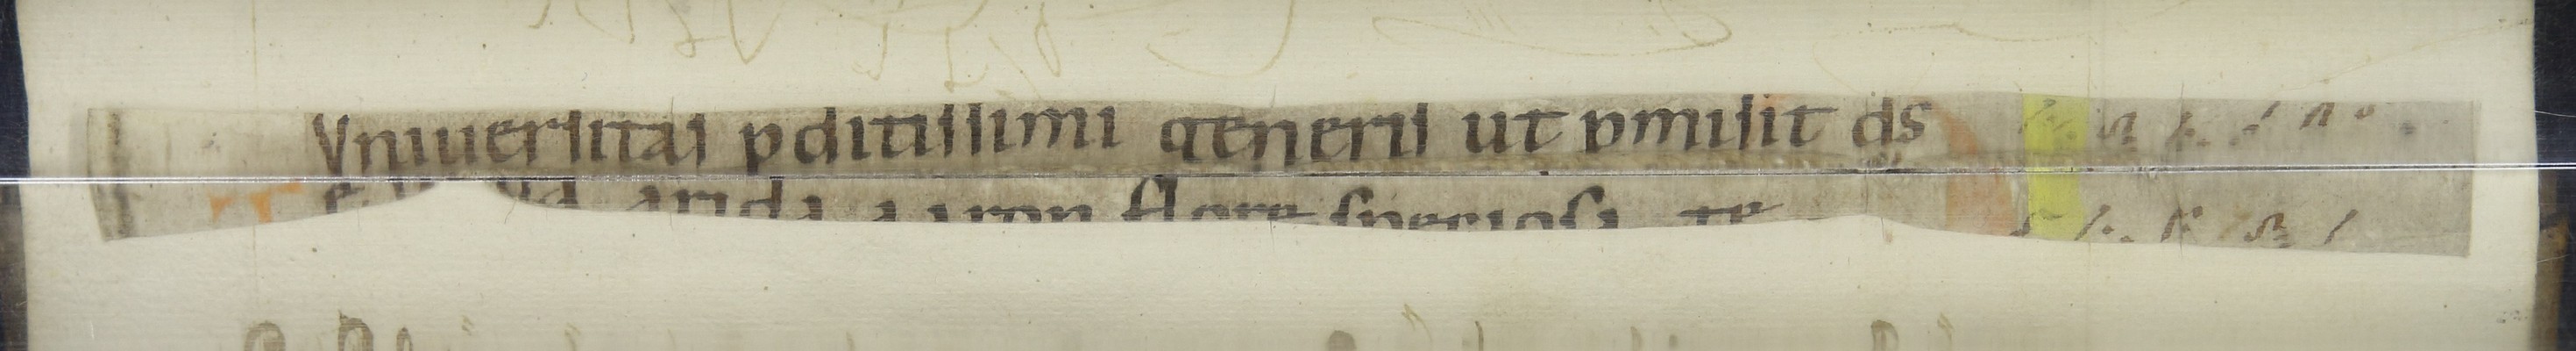 Vniuersitas pditissimi generis ut pmisit ds
arida aaron flore speciosa te